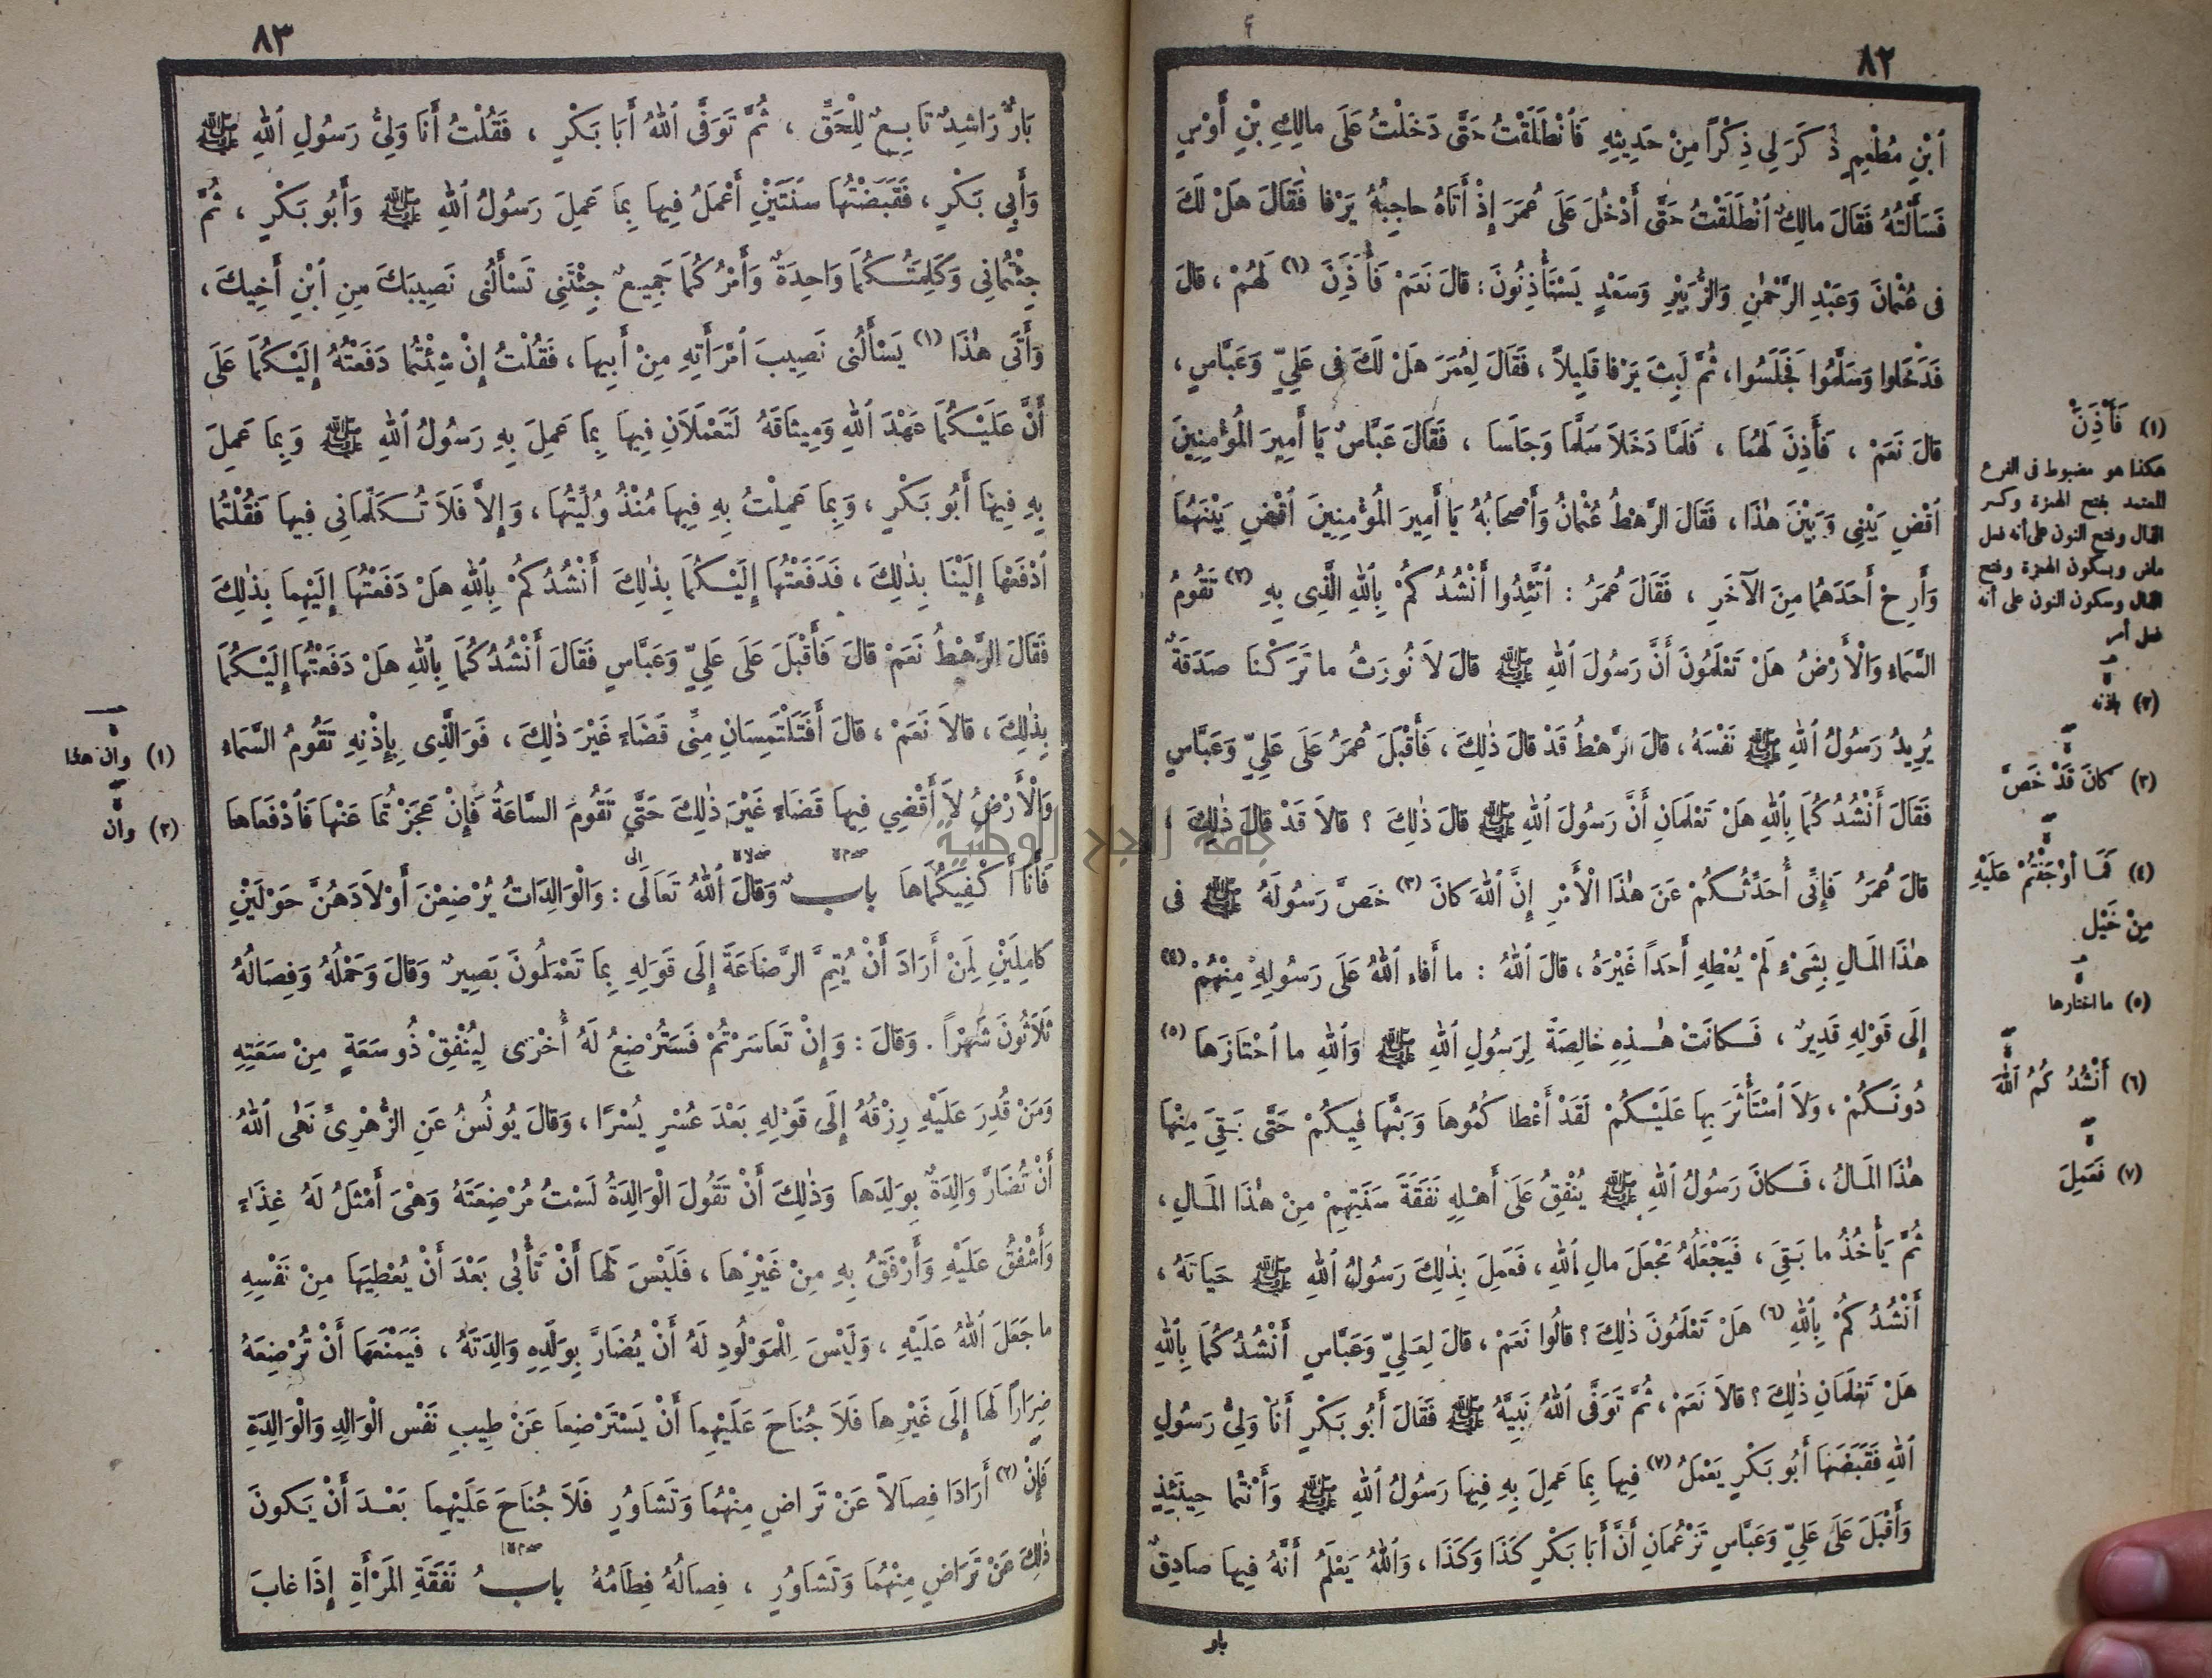 ٨٢
ٱبْنِ مُطْعِمٍ ذَكَرَ لِي ذِكْرًا مِنْ حَدِيثِهِ فَٱنْطَلَقْتُ حَتَّى دَخَلْتُ عَلَى مالِكِ بْنِ أَوْسٍ
فَسَأَلْتُهُ فَقَالَ مالِكٌ ٱنْطَلَقْتُ حَتَّى أَدْخُلَ عَلَى عُمَرَ إِذْ أَتَاهُ حاجِبُهُ يَرْفا فَقَالَ هَلْ لَكَ
فى عُثْمَانَ وَعَبْدِ الرَّحْمٰنِ وَالزُّبَيْرِ وَسَعْدٍ يَسْتَأْذِنُونَ: قالَ نَعَمْ فَأَذِنَ (١) لَهُمْ ، قالَ
فَدَخَلوا وَسَلَّمُوا فَجَلَسُوا ، ثُمَّ لَبِثَ يَرْفا قَلِيلاً ، فَقَالَ لِعُمَرَ هَلْ لَكَ فى عَلِيٍّ وَعَبَّاسٍ ،
قالَ نَعَمْ ، فَأَذِنَ لَهُمَا ، فَلَمَّا دَخَلاَ سَلَّمَا وَجَلَسا ، فَقَالَ عَبَّاسٌ يَا أَمِيرَ الْمُؤْمِنِينَ
ٱقْضِ بَيْنِى وَبَيْنَ هٰذَا ، فَقَالَ الرَّهْطُ عُثْمَانُ وَأَصْحَابُهُ يَا أَمِيرَ الْمُؤْمِنِينَ ٱقْضِ بَيْنَهُمَا
وَأَرِحْ أَحَدَهُمَا مِنَ الآخَرِ ، فَقَالَ عُمَرُ : ٱتَّئِدُوا أَنْشُدُكُمْ بِٱللهِ الَّذِى بِهِ (٢) تَقُومُ
السَّمَاءِ وَالْأَرْضُ هَلْ تَعْلَمُونَ أَنَّ رَسُولَ ٱللهِ ﷺ قالَ لاَ نُورَثُ ما تَرَكْنَا صَدَقَةٌ
يُرِيدُ رَسُولُ ٱللهِ ﷺ نَفْسَهُ ، قالَ الرَّهْطُ قَدْ قالَ ذٰلِكَ ، فَأَقْبَلَ عُمَرُ عَلَى عَلِيٍّ وَعَبَّاسٍ
فَقَالَ أَنْشُدُكُمَا بِٱللهِ هَلْ تَعْلَمَانِ أَنَّ رَسُولَ ٱللهِ ﷺ قالَ ذٰلِكَ ؟ قالاَ قَدْ قالَ ذٰلِكَ ،
قالَ عُمَرُ فَإِنِّى أُحَدِّثُكُمْ عَنَ هٰذَا الْأَمْرِ إِنَّ ٱللهَ كانَ (٣) خَصَّ رَسُولَهُ ﷺ فى
هٰذَا الْمَالِ بِشَىْءٍ لَمْ يُعْطِهِ أَحَداً غَيْرَهُ ، قالَ ٱللهُ : ما أَفاءَ ٱللهُ عَلَى رَسُولِهِ مِنْهُمْ (٤)
إِلَى قَوْلِهِ قَدِيرٌ ، فَكانَتْ هٰذِهِ خالِصَةً لِرَسُولِ ٱللهِ ﷺ وَٱللهِ ما ٱحْتَازَهَا (٥)
دُونَكُمْ ، وَلاَ ٱسْتَأْثَرَ بِهَا عَلَيْكُمْ لَقَدْ أَعْطاكُمُوها وَبَثَّهَا فِيكُمْ حَتَّى بَقِيَ مِنْهَا
هٰذَا الْمَالُ ، فَكانَ رَسُولُ ٱللهِ ﷺ يُنْفِقُ عَلَى أَهْلِهِ نَفَقَةَ سَنَتِهِمْ مِنْ هٰذَا الْمَالِ ،
ثُمَّ يَأْخُذُ ما بَقِيَ ، فَيَجْعَلُهُ مَجْعَلَ مالِ ٱللهِ ، فَعَمِلَ بِذٰلِكَ رَسُولُ ٱللهِ ﷺ حَيَاتَهُ ،
أَنْشُدُكُمْ بِٱللهِ (٦) هَلْ تَعْلَمُونَ ذٰلِكَ ؟ قالُوا نَعَمْ ، قالَ لِعَلِيٍّ وَعَبَّاسٍ أَنْشُدُكُمَا بِٱللهِ
هَلْ تَعْلَمَانِ ذٰلِكَ ؟ قالاَ نَعَمْ ، ثُمَّ تَوَفَّى ٱللهُ نَبِيَّهُ ﷺ فَقَالَ أَبُو بَكْرٍ أَنَا وَلِيُّ رَسُولِ
ٱللهِ فَقَبَضَهَا أَبُو بَكْرٍ يَعْمَلُ (٧) فِيهَا بِمَا عَمِلَ بِهِ فِيهَا رَسُولُ ٱللهِ ﷺ وَأَنْتُما حِينَئِذٍ
وَأَقْبَلَ عَلَى عَلِيٍّ وَعَبَّاسٍ تَزْعُمَانِ أَنَّ أَبَا بَكْرٍ كَذَا وَكَذَا ، وَٱللهُ يَعْلَمُ أَنَّهُ فِيهَا صَادِقٌ
بار
(١) فَأْذَنْ
هكذا هو مضبوط فى الفرع
المعتمد بفتح الهمزة وكسر
الذال وفتح النون على أنه فعل
ماض وبسكون الهمزة وفتح
الذال وسكون النون على أنه
فعل أمر
(٢) بإذنه
(٣) كانَ قَدْ خَصَّ
(٤) فَمَا أَوْجَفْتُمْ عَلَيْهِ
مِنْ خَيْلٍ
(٥) ما اختارها
(٦) أَنْشُدُكُمُ ٱللهَ
(٧) فَعَمِلَ
٨٣
بَارٌّ رَاشِدٌ تَابِعٌ لِلْحَقِّ ، ثُمَّ تَوَفَّى ٱللهُ أَبَا بَكْرٍ ، فَقُلْتُ أَنَا وَلِيُّ رَسُولِ ٱللهِ ﷺ
وَأَبِي بَكْرٍ ، فَقَبَضْتُهَا سَنَتَيْنِ أَعْمَلُ فِيهَا بِمَا عَمِلَ رَسُولُ ٱللهِ ﷺ وَأَبُو بَكْرٍ ، ثُمَّ
جِئْتُمَانِي وَكَلِمَتُكُمَا وَاحِدَةٌ وَأَمْرُكُمَا جَمِيعٌ جِئْتَنِى تَسْأَلُنِى نَصِيبَكَ مِنِ ٱبْنِ أَخِيكَ ،
وَأَتَى هٰذَا (١) يَسْأَلُنِى نَصِيبَ ٱمْرَأَتِهِ مِنْ أَبِيهَا ، فَقُلْتُ إِنْ شِئْتُمَا دَفَعْتُهُ إِلَيْكُمَا عَلَى
أَنَّ عَلَيْكُمَا عَهْدَ ٱللهِ وَمِيثَاقَهُ لَتَعْمَلاَنِ فِيهَا بِمَا عَمِلَ بِهِ رَسُولُ ٱللهِ ﷺ وَبِمَا عَمِلَ
بِهِ فِيهَا أَبُو بَكْرٍ ، وَبِمَا عَمِلْتُ بِهِ فِيهَا مُنْذُ وُلِّيتُهَا ، وَإِلاَّ فَلاَ تُكَلِّمَانِي فِيهَا فَقُلْتُمَا
ٱدْفَعْهَا إِلَيْنَا بِذٰلِكَ ، فَدَفَعْتُهَا إِلَيْكُمَا بِذٰلِكَ أَنْشُدُكُمْ بِٱللهِ هَلْ دَفَعْتُهَا إِلَيْهِما بِذٰلِكَ
فَقَالَ الرَّهْطُ نَعَمْ قالَ فَأَقْبَلَ عَلَى عَلِيٍّ وَعَبَّاسٍ فَقَالَ أَنْشُدُكُمَا بِٱللهِ هَلْ دَفَعْتُهَا إِلَيْكُمَا
بِذٰلِكَ ، قالاَ نَعَمْ ، قالَ أَفَتَلْتَمِسَانِ مِنِّى قَضَاءً غَيْرَ ذٰلِكَ ، فَوَالَّذِى بِإِذْنِهِ تَقُومُ السَّمَاءُ
وَالْأَرْضُ لاَ أَقْضِي فِيهَا قَضَاءً غَيْرَ ذٰلِكَ حَتَّى تَقُومَ السَّاعَةُ فَإِنْ عَجَزْتُمَا عَنْهَا فَٱدْفَعَاها
فَأَنَا أَكْفِيكُمَاهَا بابٌ وَقالَ ٱللهُ تَعَالَى : وَالْوَالِدَاتُ يُرْضِعْنَ أَوْلاَدَهُنَّ حَوْلَيْنِ
كامِلَيْنِ لِمَنْ أَرَادَ أَنْ يُتِمَّ الرَّضَاعَةَ إِلَى قَوْلِهِ بِمَا تَعْمَلُونَ بَصِيرٌ وَقالَ وَحَمْلُهُ وَفِصَالُهُ
ثَلَاثُونَ شَهْرًا . وَقالَ : وَإِنْ تَعَاسَرْتُمْ فَسَتُرْضِعُ لَهُ أُخْرَى لِيُنْفِقْ ذُو سَعَةٍ مِنْ سَعَتِهِ
وَمَنْ قُدِرَ عَلَيْهِ رِزْقُهُ إِلَى قَوْلِهِ بَعْدَ عُسْرٍ يُسْرًا ، وَقالَ يُونُسُ عَنِ الزُّهْرِىِّ نَهَى ٱللهُ
أَنْ تُضَارَّ وَالِدَةٌ بِوَلَدِهَا وَذٰلِكَ أَنْ تَقُولَ الْوَالِدَةُ لَسْتُ مُرْضِعَتَهُ وَهْىَ أَمْثَلُ لَهُ غِذَاءً
وَأَشْفَقُ عَلَيْهِ وَأَرْفَقُ بِهِ مِنْ غَيْرِهَا ، فَلَيْسَ لَهَا أَنْ تَأْبٰى بَعْدَ أَنْ يُعْطِيَهَا مِنْ نَفْسِهِ
ما جَعَلَ ٱللهُ عَلَيْهِ ، وَلَيْسَ لِلْمَوْلُودِ لَهُ أَنْ يُضَارَّ بِوَلَدِهِ وَالِدَتَهُ ، فَيَمْنَعَهَا أَنْ تُرْضِعَهُ
ضِرَارًا لَهَا إِلَى غَيْرِهَا فَلاَ جُنَاحَ عَلَيْهِمَا أَنْ يَسْتَرْضِعَا عَنْ طِيبِ نَفْسِ الْوَالِدِ وَالْوَالِدَةِ
فَإِنْ (٢) أَرَادَا فِصَالاً عَنْ تَرَاضٍ مِنْهُمَا وَتَشَاوُرٍ فَلاَ جُنَاحَ عَلَيْهِمَا بَعْدَ أَنْ يَكونَ
ذٰلِكَ عَنْ تَرَاضٍ مِنْهُمَا وَتَشَاوُرٍ ، فِصالُهُ فِطَامُهُ بابُ نَفَقَةِ المَرْأَةِ إِذَا غابَ
(١) وان هذا
(٢) وان
جامعة النجاح الوطنية